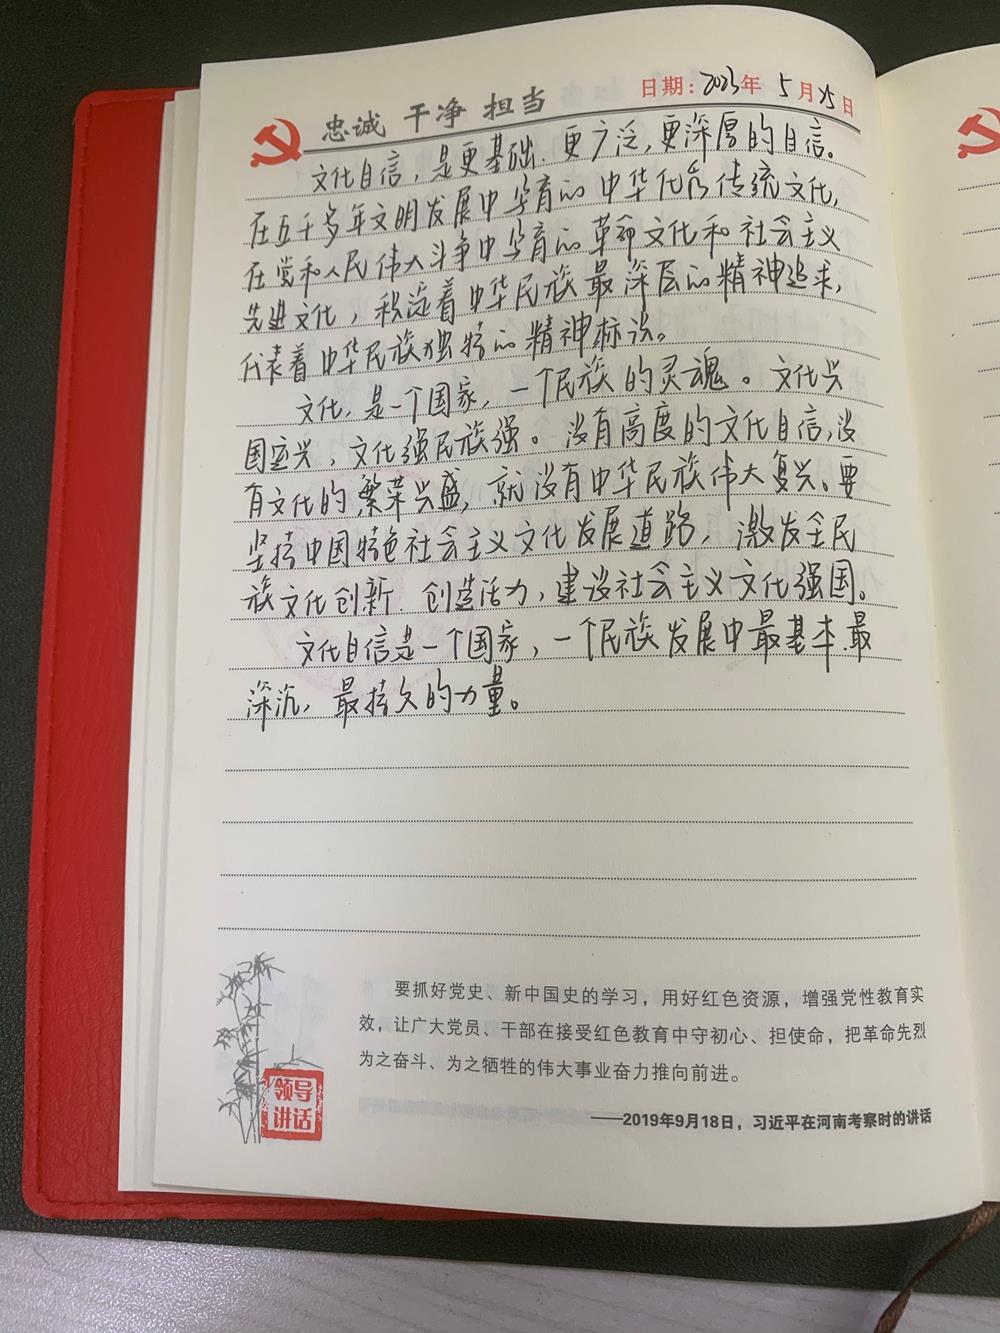 忠诚 干净 担当
日期：2023年 5月25日
文化自信，是更基础、更广泛，更深厚的自信。
在五千多年文明发展中孕育的中华优秀传统文化，
在党和人民伟大斗争中孕育的革命文化和社会主义
先进文化，积淀着中华民族最深层的精神追求，
代表着中华民族独特的精神标识。
文化，是一个国家，一个民族的灵魂。文化兴
国运兴，文化强民族强。没有高度的文化自信，没
有文化的繁荣兴盛，就没有中华民族伟大复兴、要
坚持中国特色社会主义文化发展道路，激发全民
族文化创新、创造活力，建设社会主义文化强国。
文化自信是一个国家，一个民族发展中最基本、最
深沉，最持久的力量。
要抓好党史、新中国史的学习，用好红色资源，增强党性教育实
效，让广大党员、干部在接受红色教育中守初心、担使命，把革命先烈
为之奋斗、为之牺牲的伟大事业奋力推向前进。
领导
讲话
——2019年9月18日，习近平在河南考察时的讲话